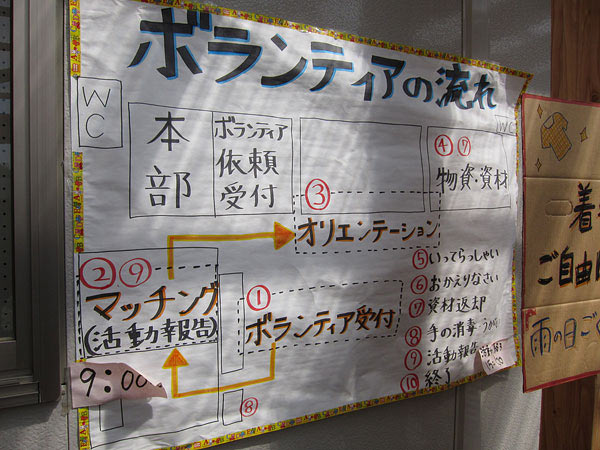 ボランティアの流れ
WC
本部
ボランティア
依頼
受付
WC
④⑦
物資・資材
③
オリエンテーション
②⑨
マッチング
(活動報告)
①
ボランティア受付
9:00
⑧
⑤いってらっしゃい
⑥おかえりなさい
⑦資材返却
⑧手の消毒・うがい
⑨活動報告
⑩終了
着
ご自由に
雨の日ご